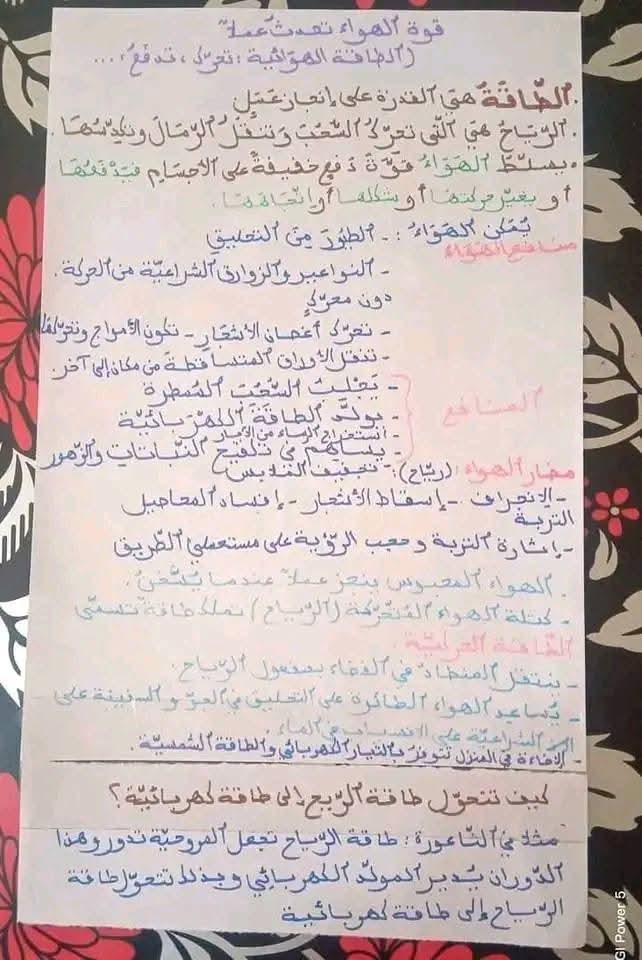 قوة الهواء تحدث عملا
(الطاقة الهوائية: تحرك، تدفع، ...
. الطّاقة هي القدرة على إنجاز عمل
. الرّياح هي الّتي تحرّك السّحب وتنقل الرّمال وتكدّسها.
. يسلّط الهواء قوّة دفع خفيفة على الأجسام فيدفعها
أو يغيّر حركتها أو شكلها أو اتّجاهها.
يُمكن الهواء: - الطيور من التحليق
منافع الهواء
- النواعير والزوارق الشراعيّة من الحركة.
دون محرّك
- تحرّك أغصان الأشجار - تكون الأمواج وتحرّكها
- تنقل الأوراق المتساقطة من مكان إلى آخر.
- تجلب السّحب المُمطرة
المنافع
- يولّد الطّاقة الكهربائيّة
- استخراج الماء من الآبار
- يساهم في تلقيح النّباتات والزّهور
مضار الهواء (رياح): - تجفيف الملابس
- الانجراف - إسقاط الأشجار - إفساد المحاصيل
التربة
- إثارة التربة وحجب الرّؤية على مستعملي الطّريق
. الهواء المحبوس ينجز عملا عندما يُسخّن.
- كتلة الهواء المُتحرّكة (الرّياح) تملك طاقة تسمّى
الطّاقة الحركيّة
- ينتقل المنطاد في الفضاء بمفعول الرّياح.
- يُساعد الهواء الطائرة على التحليق في الجوّ والسفينة على
الشراعيّة على الانسياب في الماء.
- الإضاءة في المنزل تتوفّر بالتيار الكهربائي والطاقة الشمسيّة.
كيف تتحوّل طاقة الرّيح إلى طاقة كهربائيّة؟
مثلا في النّاعورة: طاقة الرّياح تجعل المروحيّة تدور وهذا
الدّوران يُدير المولّد الكهربائي وبذلك تتحوّل طاقة
الرّياح إلى طاقة كهربائية
GI Power 5